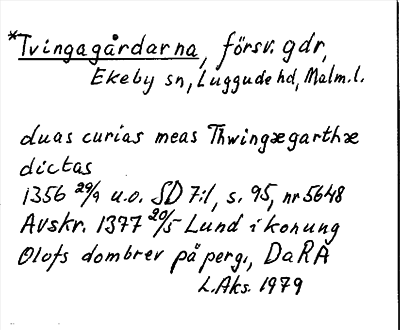 *Tvingagårdarna, försv. gdr,
Ekeby sn, Luggude hd, Malm. l.
duas curias meas Thwingægarthæ
dictas
1356 29/9 u.o. SD 7:1, s. 95, nr 5648
Avskr. 1377 20/5 Lund i konung
Olofs dombrev på perg., DaRA
L. Aks. 1979